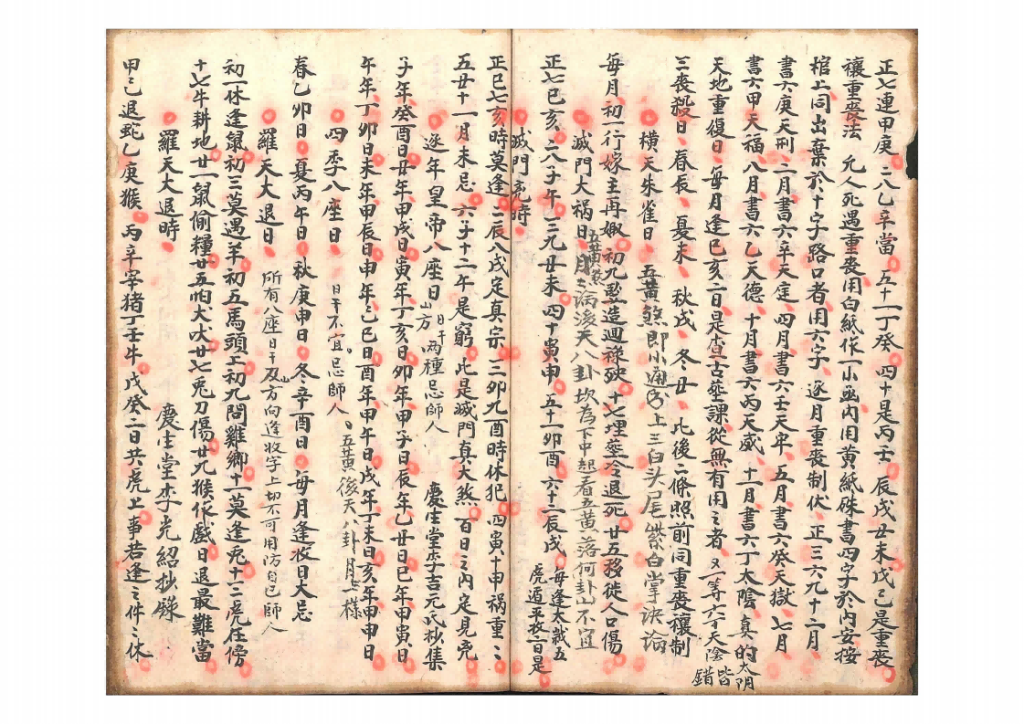 正七連甲庚二八乙辛當五十一丁癸四十是丙壬辰戌丑未戊己是重喪
禳重喪法 凡人死遇重喪用白紙作一小函內用黃紙硃書四字於內安按
棺上同出棄於十字路口者用六字逐月重喪制伏正三六九十二月
書六庚天刑二月書六辛天庭四月書六壬天牢五月書六癸天獄七月
書六甲天福八月書六乙天德十月書六丙天威十一月書六丁太陰 真的太阴
天地重復日每月逢巳亥二日是查古塟課從無有用之者 又一等六丁天陰皆錯
三喪殺日春辰夏未秋戌冬丑此後二條照前同重喪禳制
橫天朱雀日 五黃煞即小通書上三白头尾紫白掌訣論
每月初一行嫁主再娵初九塟造迴祿殃十七埋塟冷退死廿五移徒人口傷
滅門大禍日 五黃煞月上論後天八卦坎為下中起看五黃落何卦山不宜
正七巳亥二八子午三九丑未四十寅申五十一卯酉六十二辰戌 每逢太歲五虎遁平收二日是
滅門兇時
正巳七亥時莫逢二辰八戌定真宗三卯九酉時休犯四寅十申祸重重
五丑十一月未忌六子十二午是窮此是滅門真大煞百日之內定見兇
逐年皇帝八座日 日干山方两種忌師人 慶生堂李吉元氏抄集
子年癸酉日丑年甲戌日寅年丁亥日卯年甲子日辰年乙丑日巳年甲寅日
午年丁卯日未年甲辰日申年己巳日酉年甲午日戌年丁未日亥年甲申日
四季八座日 日干不宜忌師人 五黃後天八卦月上一樣
春乙卯日夏丙午日秋庚申日冬辛酉日每月逢收日大忌
羅天大退日 所有八座日干及山方向逢收字上切不可用防自己師人
初一休逢鼠初三莫遇羊初五馬頭上初九問雞鄉十一莫逢兎十三虎在傍
十七牛耕地廿一鼠偷糧廿五怕犬吠廿七兎刀傷廿九猴作戲日退最難當
羅天大退時 慶生堂李光紹抄錄
甲己退蛇乙庚猴丙辛宰猪丁壬牛戊癸二日共虎上事若逢之件件休